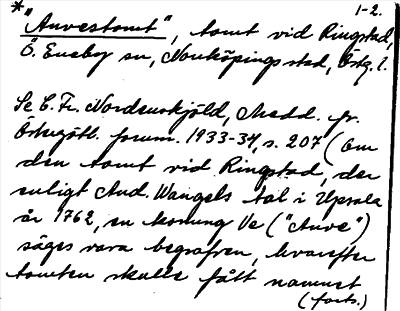 1-2.
* "Anvestomt", tomt vid Ringstad,
Ö. Eneby sn, Norrköpings stad, Östg. l.
Se C. Fr. Nordenskjöld, Medd. fr.
Östergötl. fornm. 1933-34, s. 207 (om
den tomt vid Ringstad, der
enligt And. Wangels tal i Upsala
år 1762, en konung Ve ("Anve")
säges vara begrafven, hvarefter
tomten skulle fått namnet
(forts.)